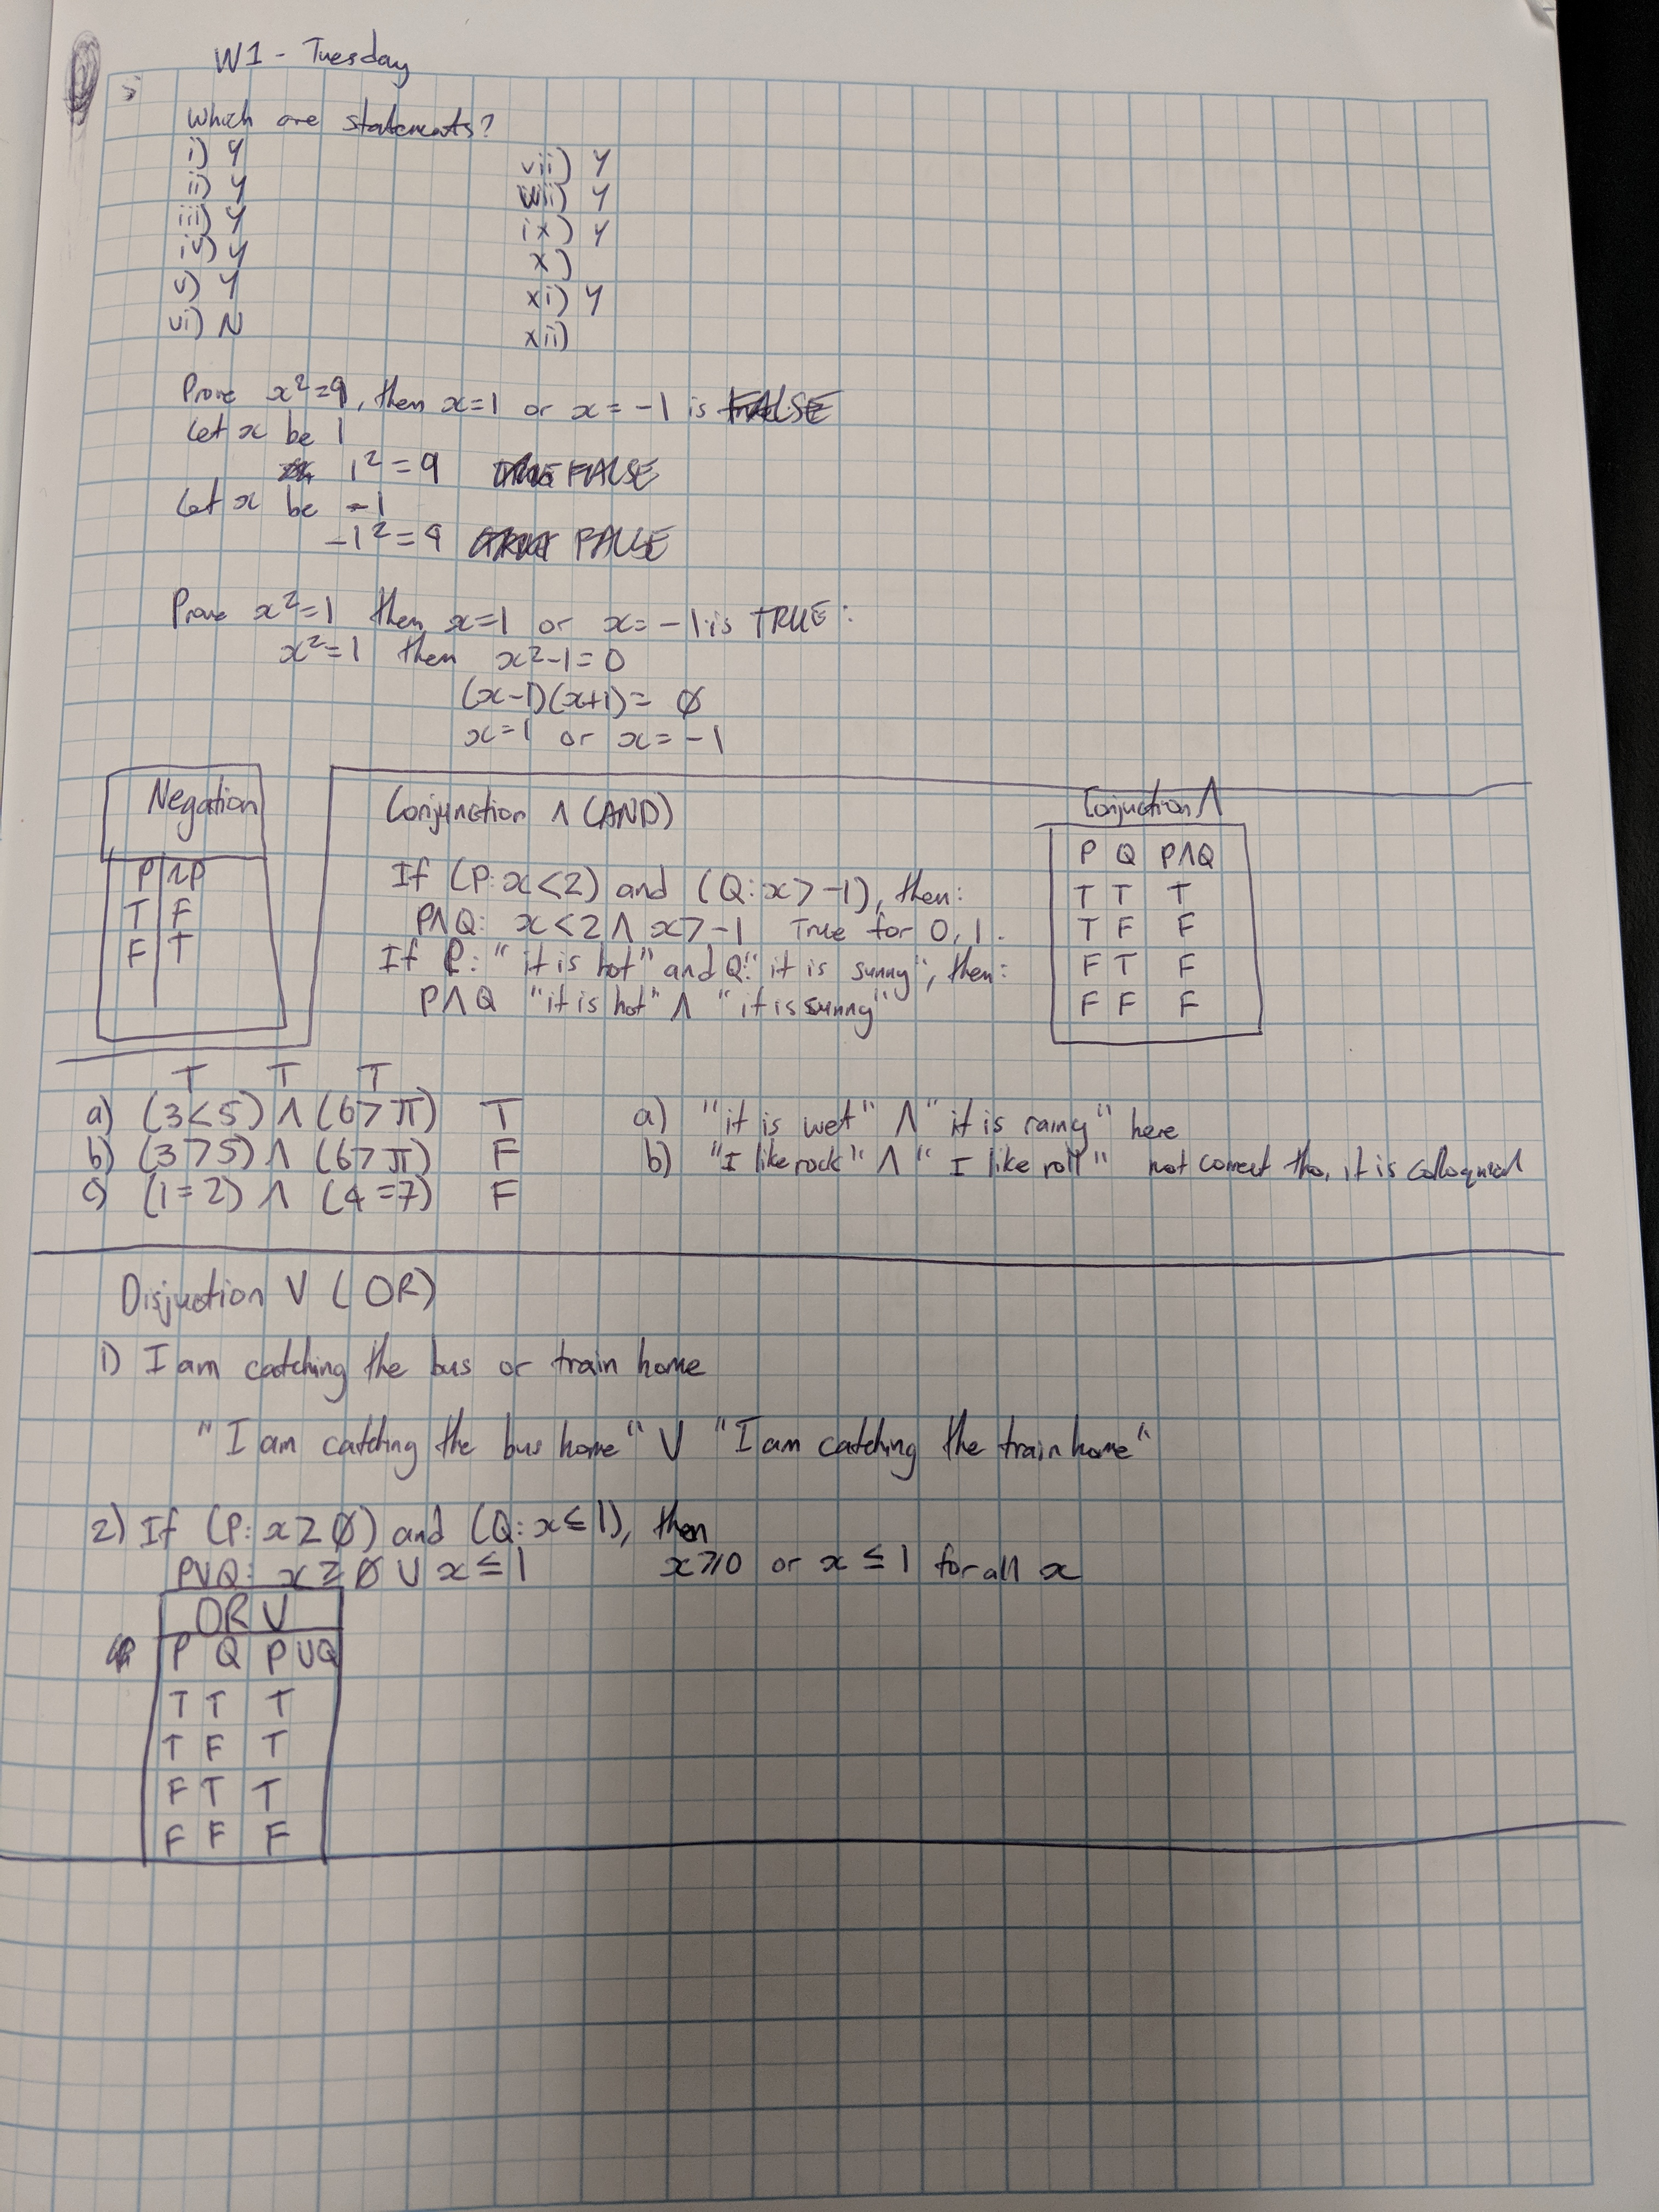 W1 - Tuesday
Which are statements?
i) Y
ii) Y
iii) Y
iv) Y
v) Y
vi) N
vii) Y
viii) Y
ix) Y
x)
xi) Y
xii)
Prove x²=9, then x=1 or x=-1 is FALSE
Let x be 1
1²=9 FALSE
Let x be -1
-1²=9 FALSE
Prove x²=1 then x=1 or x=-1 is TRUE:
x²=1 then x²-1=0
(x-1)(x+1)= 0
x=1 or x=-1
Negation
P ~P
T F
F T
Conjunction ∧ (AND)
If (P: x<2) and (Q: x>-1), then:
P∧Q: x<2 ∧ x>-1 True for 0,1.
If P: "it is hot" and Q: "it is sunny", then:
P∧Q "it is hot" ∧ "it is sunny"
Conjuction ∧
P Q P∧Q
T T T
T F F
F T F
F F F
T T T
a) (3<5) ∧ (6>π) T
b) (3>5) ∧ (6>π) F
c) (1=2) ∧ (4=7) F
a) "it is wet" ∧ "it is rainy" here
b) "I like rock" ∧ "I like roll" not correct tho, it is colloquial
Disjuction V (OR)
1) I am catching the bus or train home
"I am catching the bus home" V "I am catching the train home"
2) If (P: x≥0) and (Q: x≤1), then
PUQ: x≥0 U x≤1 x≥0 or x≤1 for all x
OR V
P Q PUQ
T T T
T F T
F T T
F F F